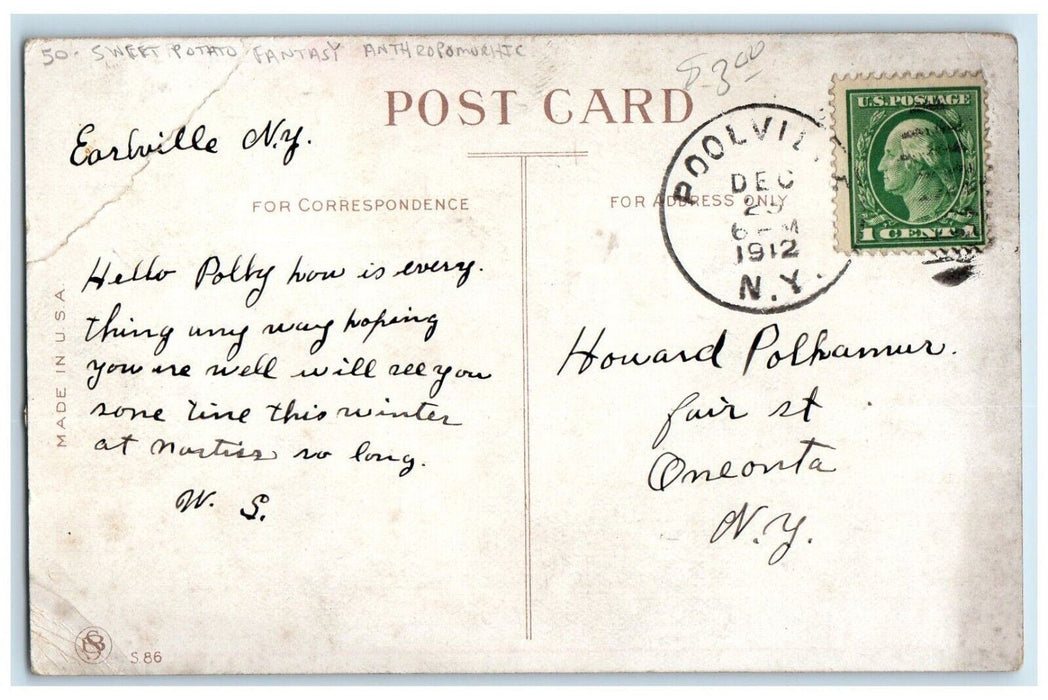 50. SWEET POTATO FANTASY ANTHROPOMORHIC
8-3.00
POST CARD
U.S. POSTAGE
1 CENT 1
POOLVILL
DEC
29
6 PM
1912
N.Y.
Earlville N.Y.
FOR CORRESPONDENCE
FOR ADDRESS ONLY
Hello Polhy how is every.
thing any way hoping
you are well will see you
some time this winter
at so long.
W. S.
Howard Polhamur.
fair st
Oneonta
N.Y.
MADE IN U.S.A.
S.86